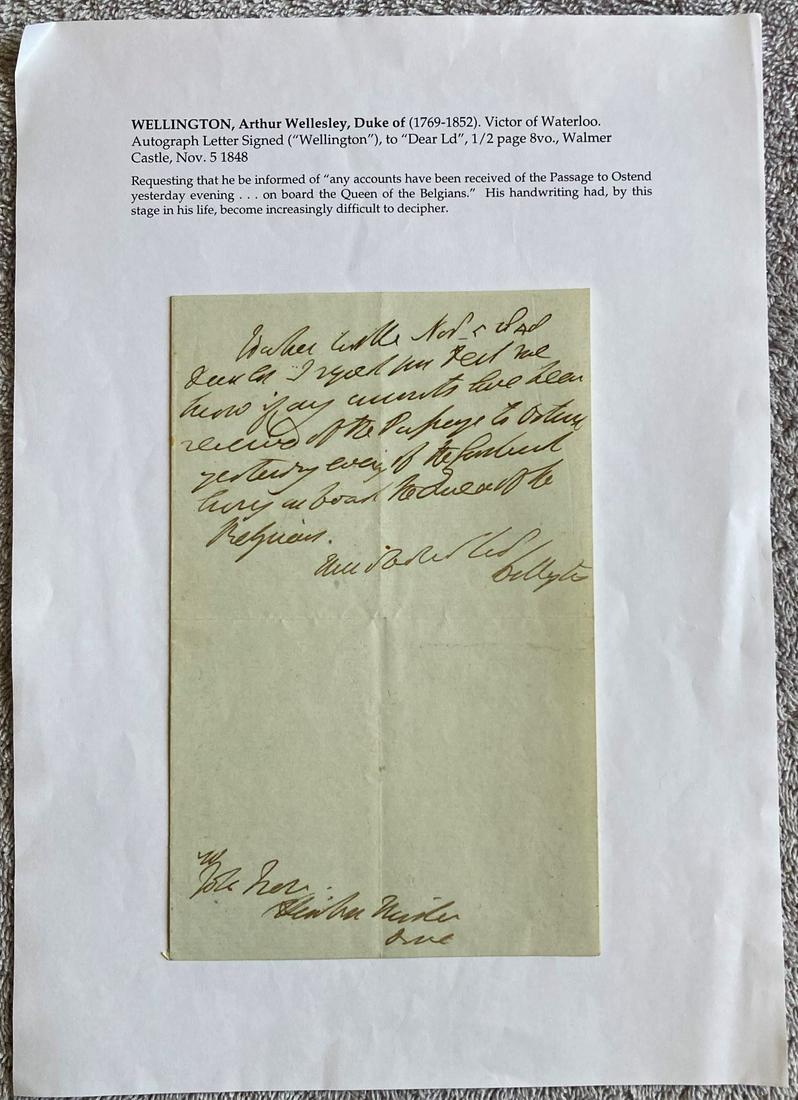 WELLINGTON, Arthur Wellesley, Duke of (1769-1852). Victor of Waterloo.
Autograph Letter Signed (“Wellington”), to “Dear Ld”, 1/2 page 8vo., Walmer
Castle, Nov. 5 1848
Requesting that he be informed of “any accounts have been received of the Passage to Ostend
yesterday evening . . . on board the Queen of the Belgians.” His handwriting had, by this
stage in his life, become increasingly difficult to decipher.
Walmer Castle Nov. 5 1848
me
know if any accounts have been
received of the Passage to Ostend
yesterday evening of the
on board the Queen of the
Belgians.
Wellington